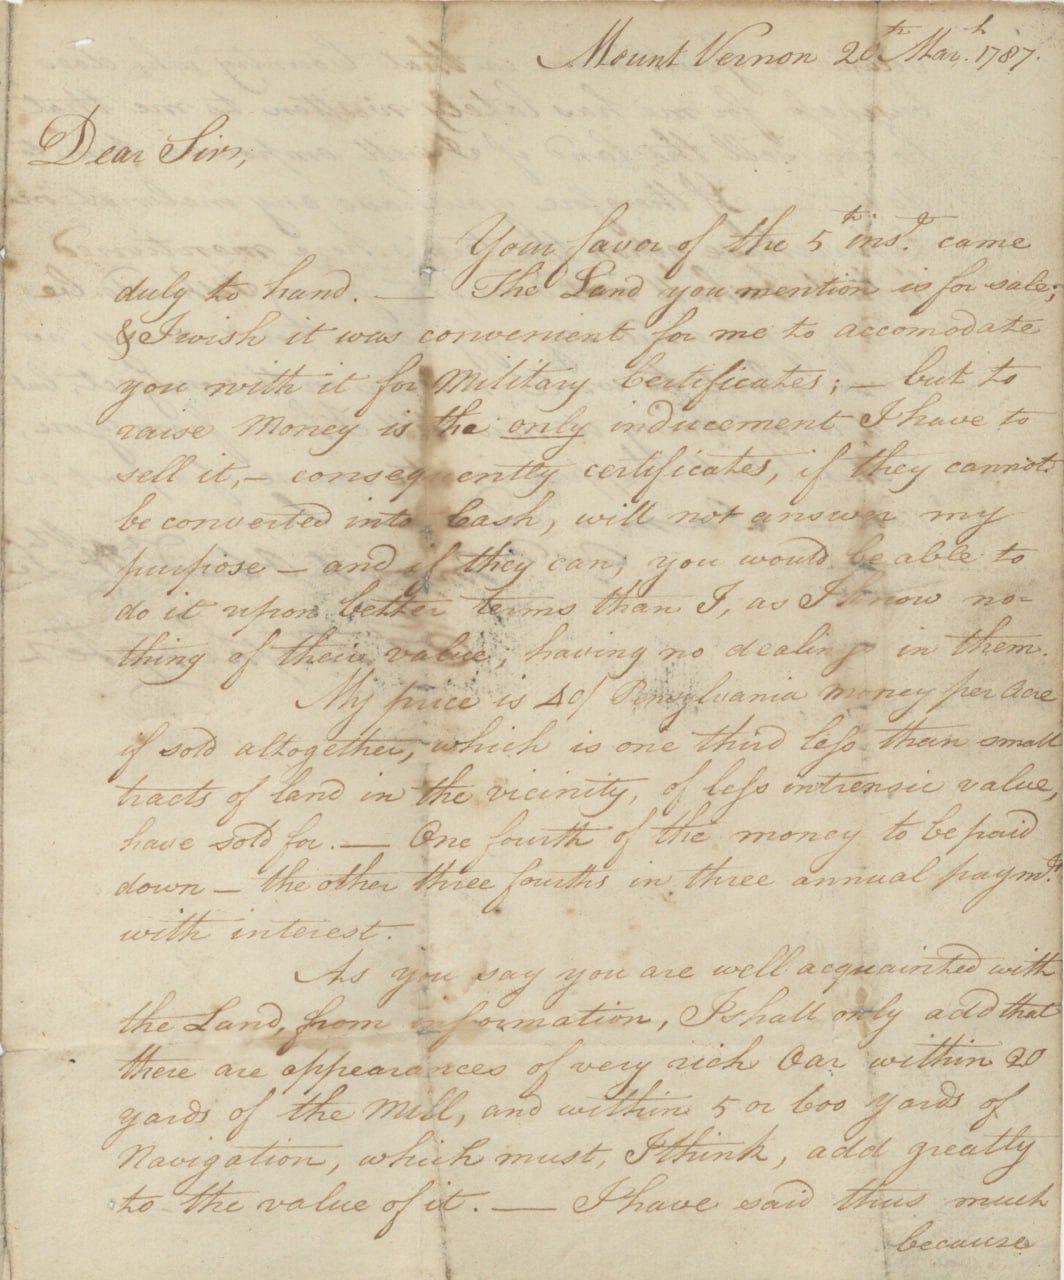 Mount Vernon 20th Mar.h 1787.
Dear Sir,
Your favor of the 5th inst. came
duly to hand. — The Land you mention is for sale;
& I wish it was convenient for me to accomodate
you with it for Military Certificates; — but to
raise Money is the only inducement I have to
sell it, — consequently certificates, if they cannot
be converted into Cash, will not answer my
purpose — and if they can, you would be able to
do it upon better terms than I, as I know no-
thing of their value, having no dealing in them.
My price is 40/ Pensylvania money per Acre
if sold altogether, which is one third less than small
tracts of land in the vicinity, of less intrensic value,
have sold for. — One fourth of the money to be paid
down — the other three fourths in three annual paymts.
with interest.
As you say you are well acquainted with
the Land, from information, I shall only add that
there are appearances of very rich Oar within 20
yards of the Mill, and within 5 or 600 yards of
Navigation, which must, I think, add greatly
to the value of it. — I have said thus much
because